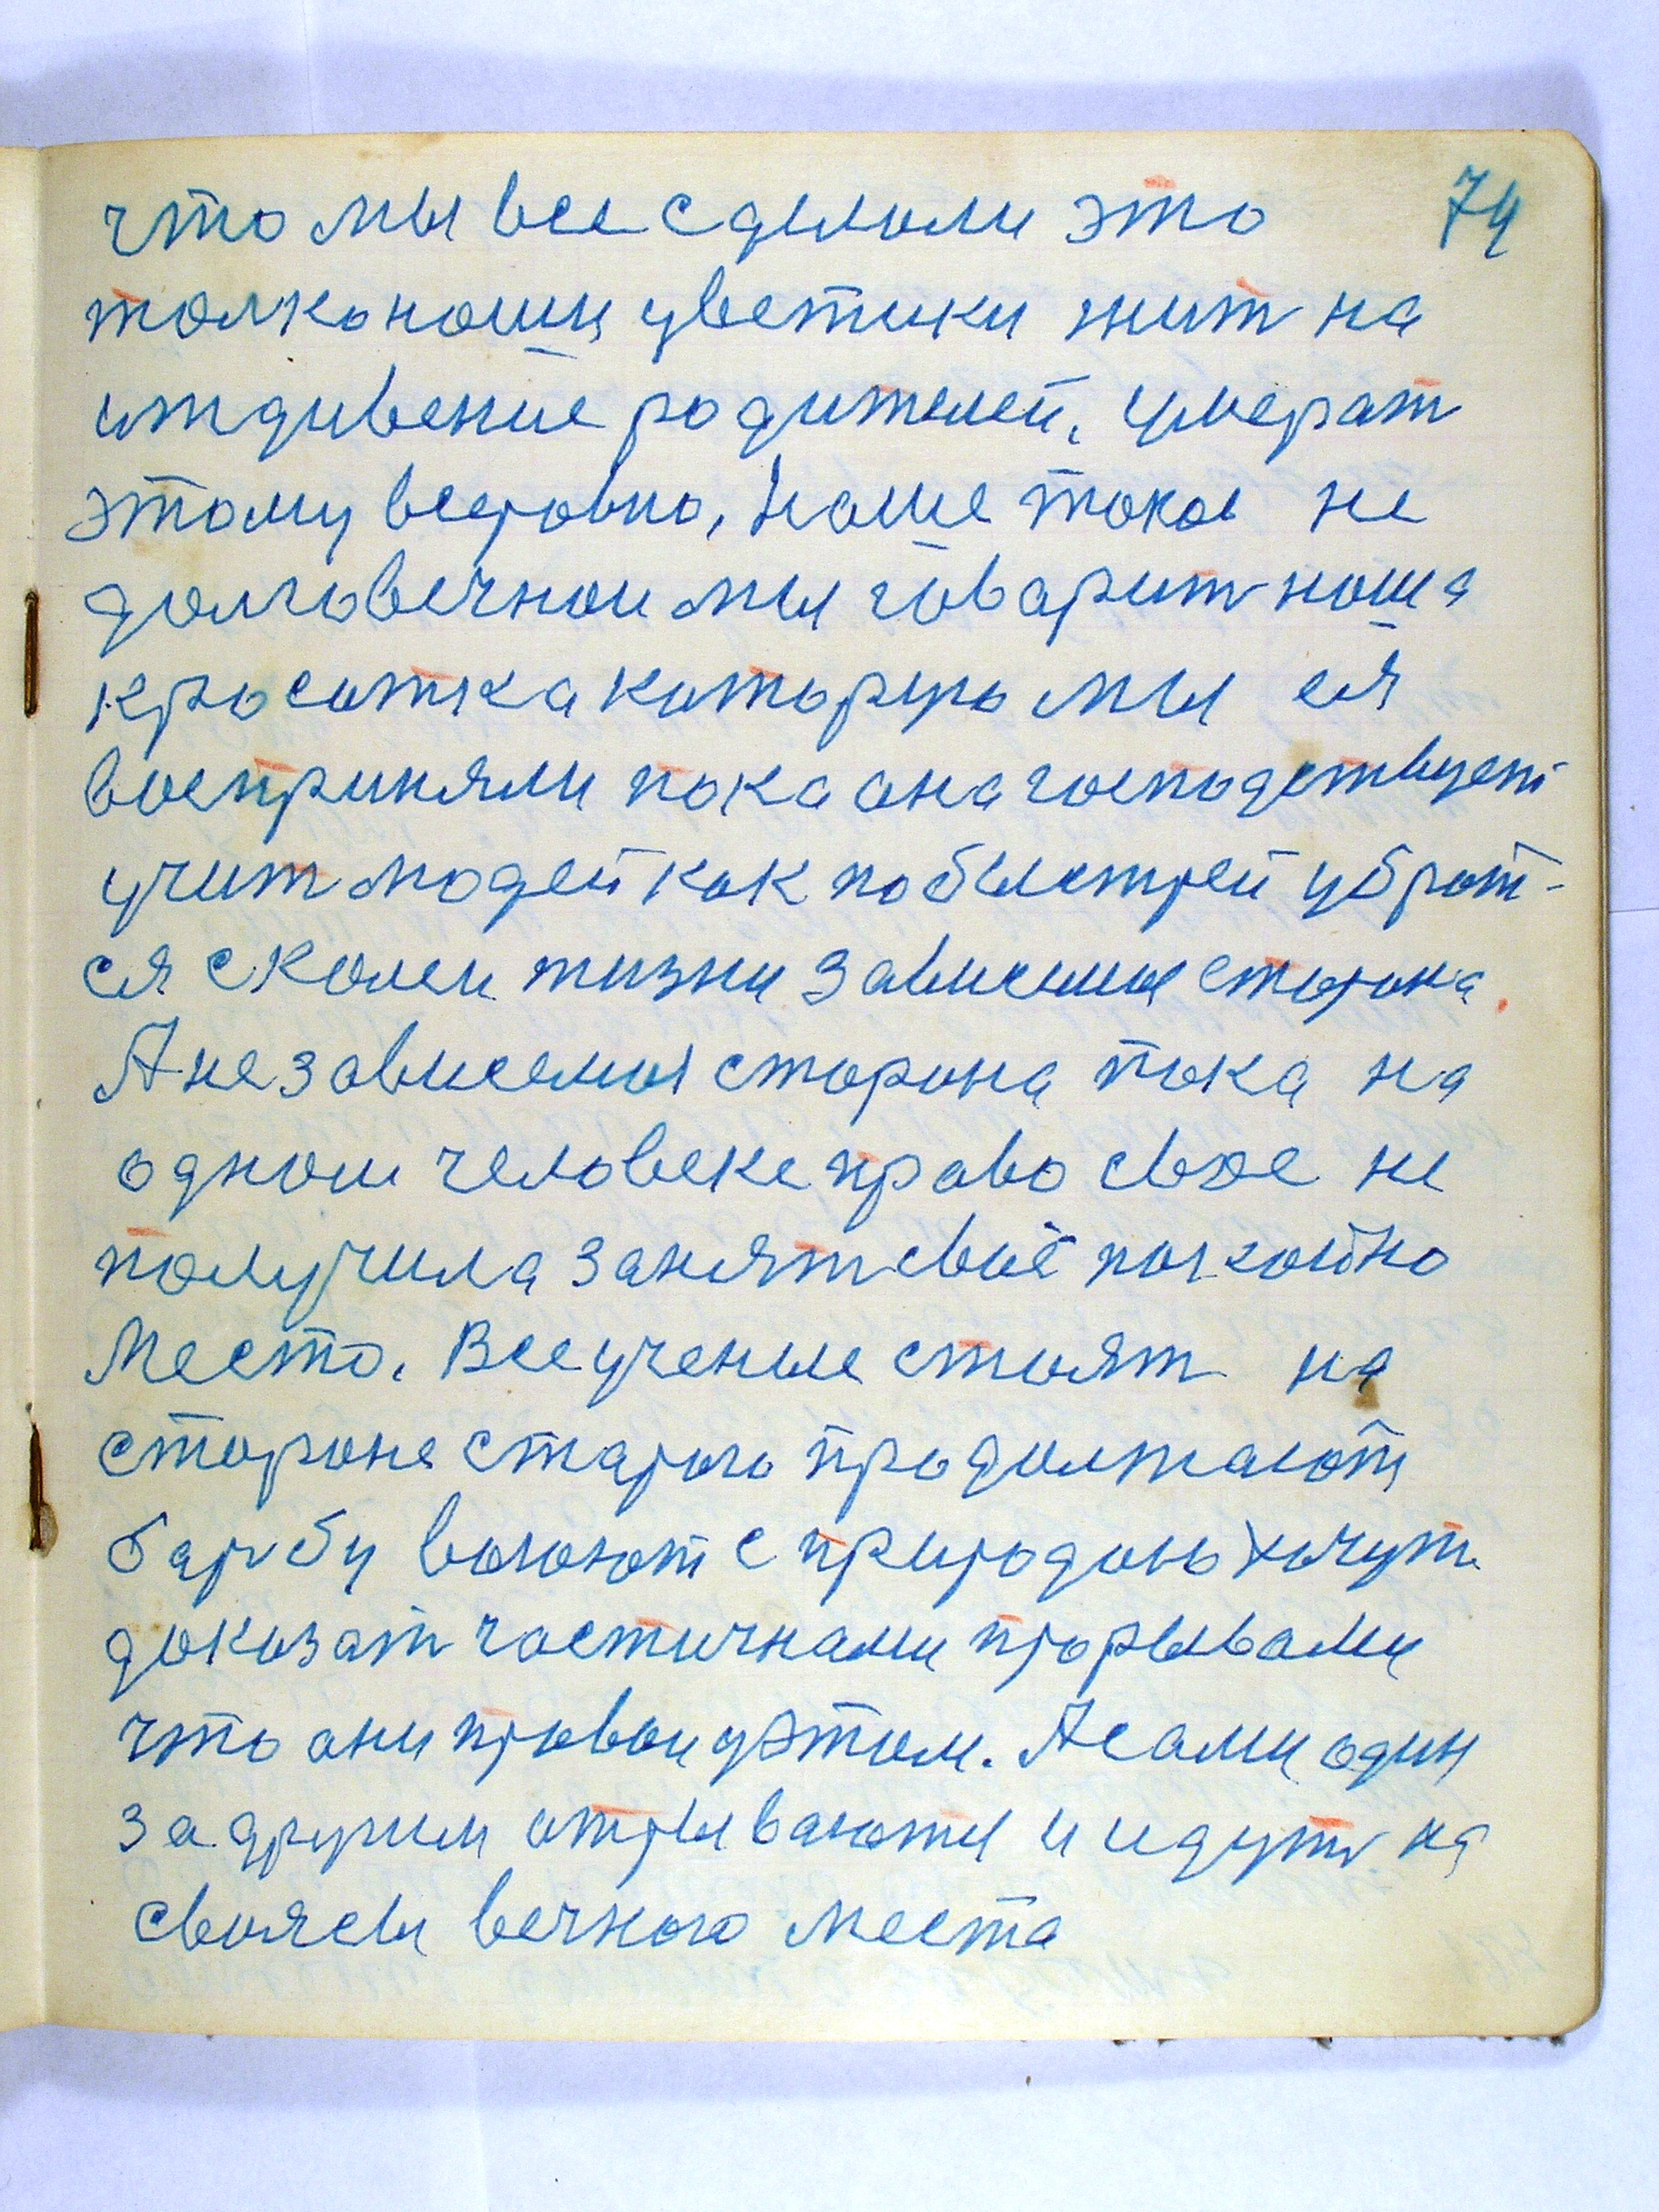 что мы все сделали это 74
толко наши цветики жит на
иждивение родителей, умерат
этому всеровно, Наше токое не
долговечнои мы говарит наша
кросотка которую мы ея
восприняли пока она господствует
учит людей как побыстрей убрат-
ся сколеи жизни зависимая сторона.
А независемоя сторона пока на
одном человеке право свое не
получила занят своё покойно
Место. Все ученые стоят на
стороне старого продолжают
барбу воюют с природою хочут
доказат частичнами прорывами
что они правои уэтом. А сами один
за другим отрываютя и идут на
свояси вечного места